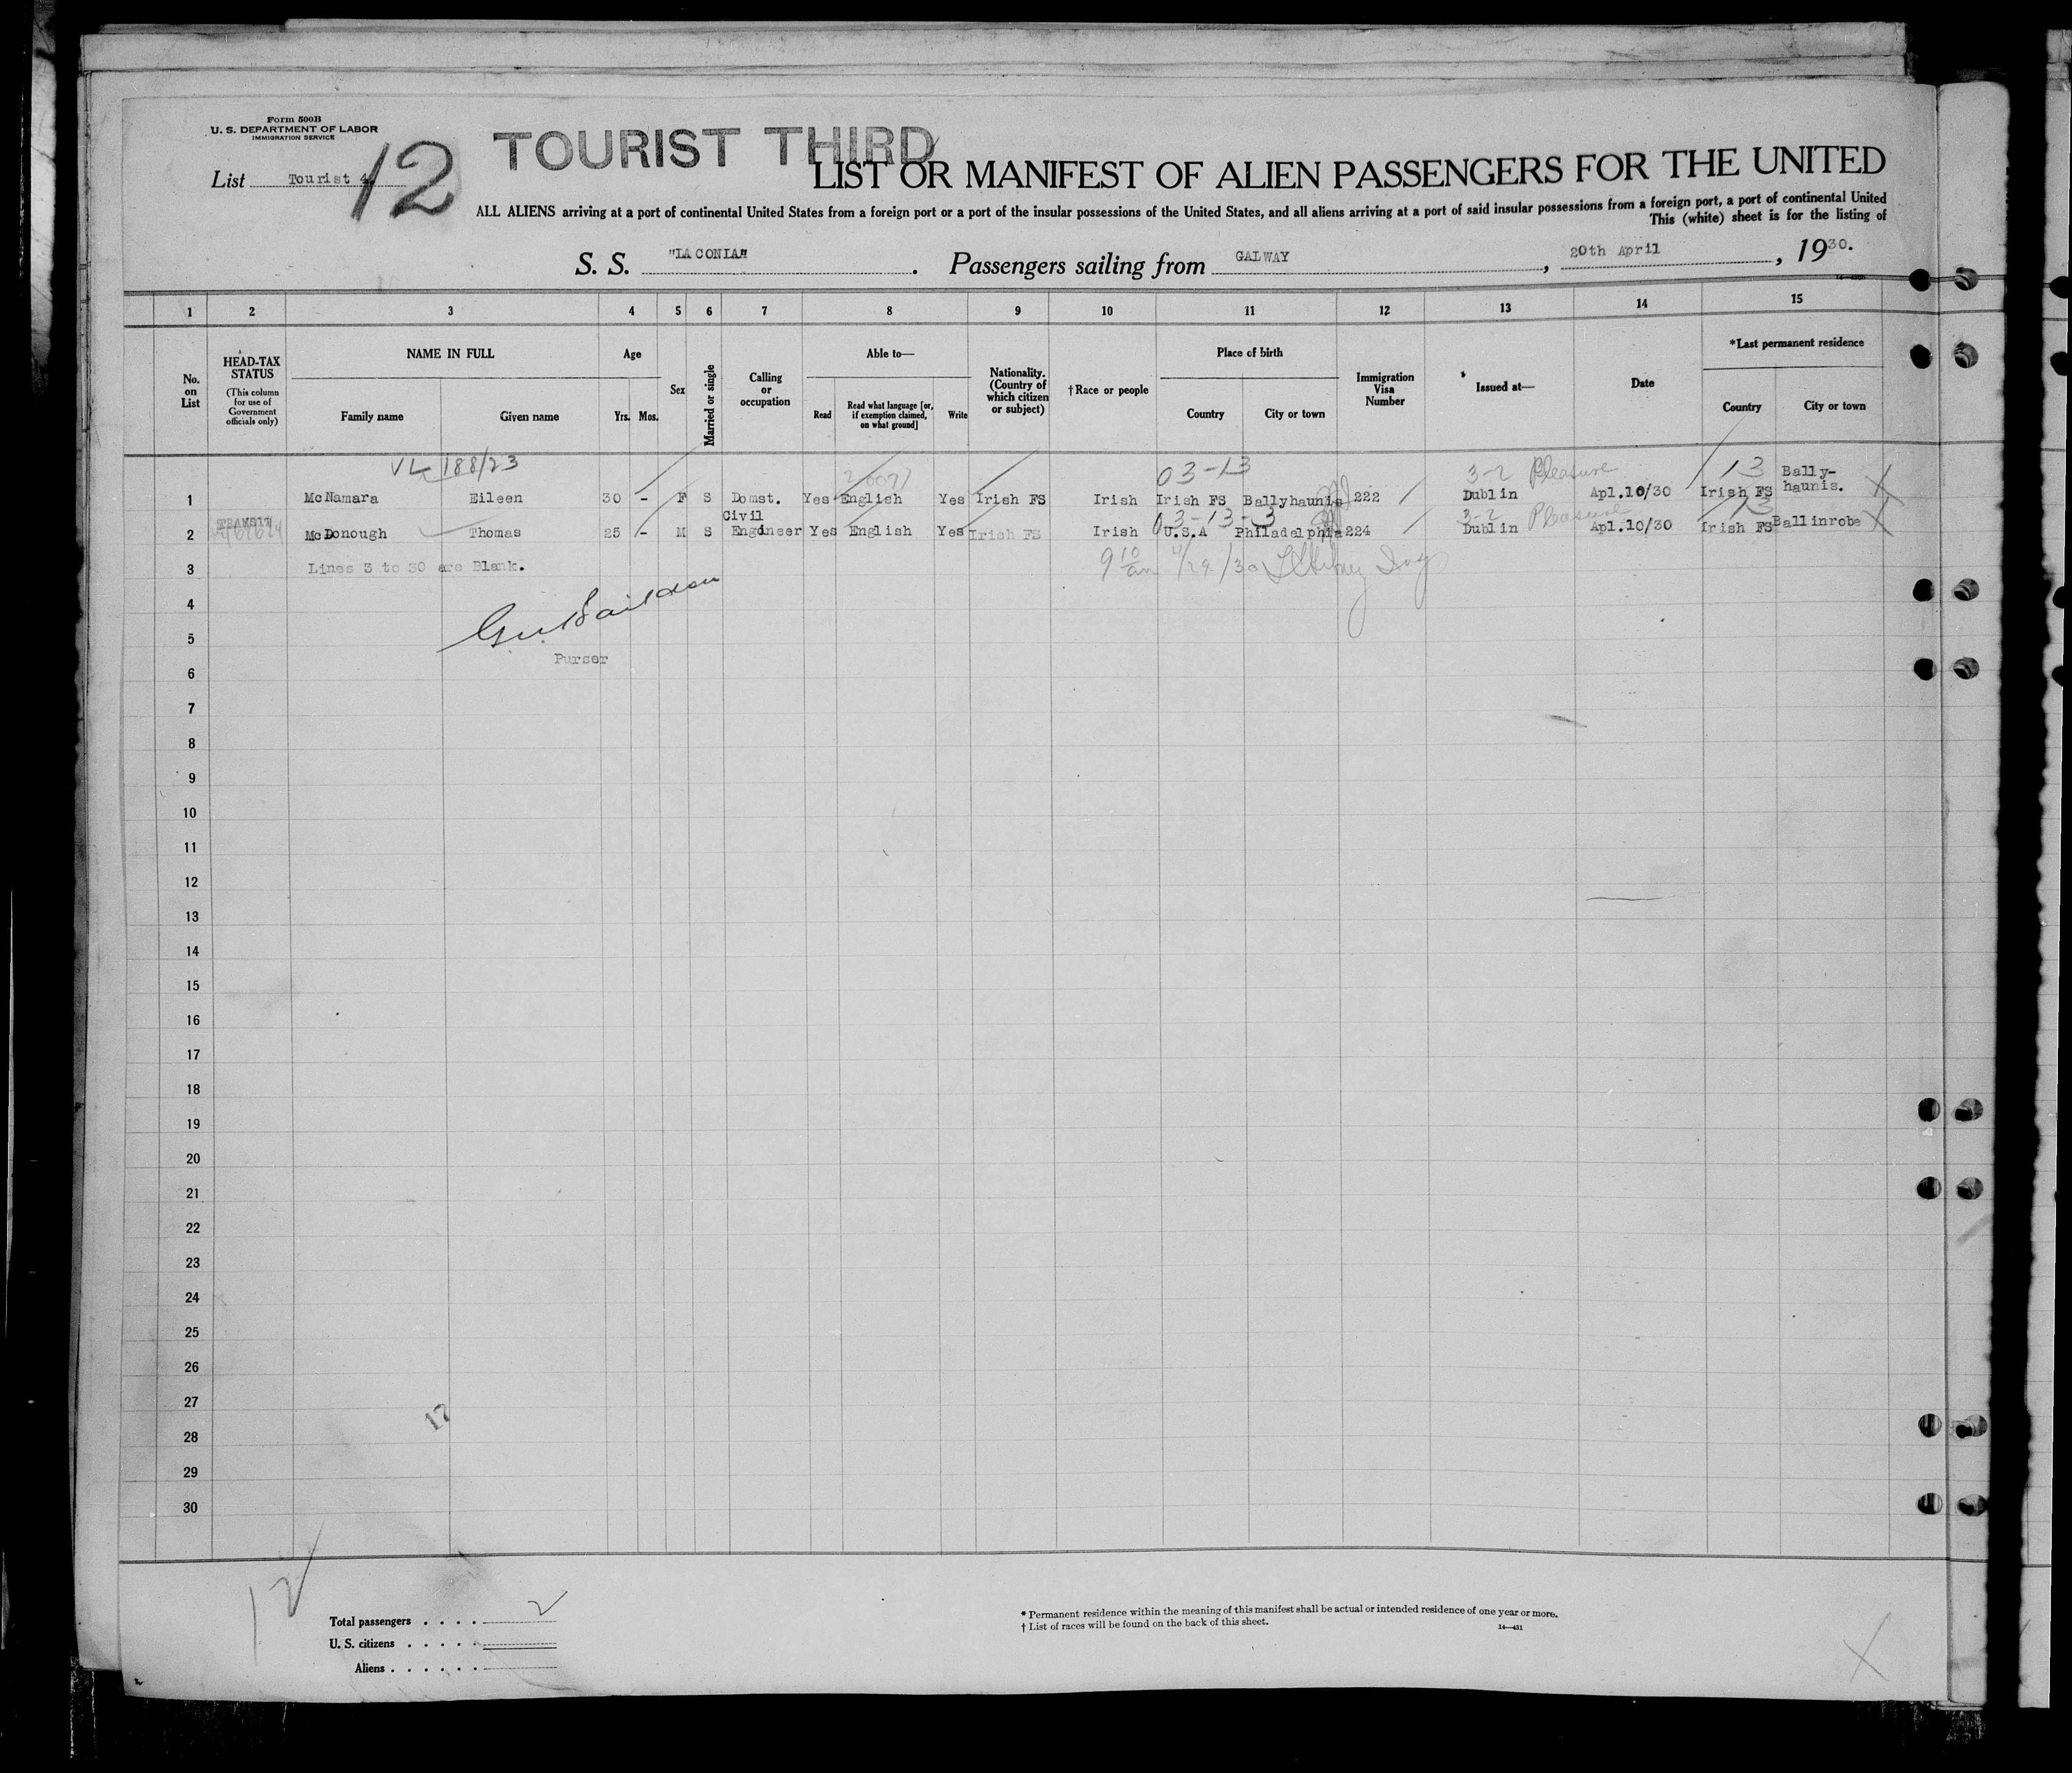 Form 500B
U. S. DEPARTMENT OF LABOR
IMMIGRATION SERVICE
List Tourist 4.
12
TOURIST THIRD
LIST OR MANIFEST OF ALIEN PASSENGERS FOR THE UNITED
ALL ALIENS arriving at a port of continental United States from a foreign port or a port of the insular possessions of the United States, and all aliens arriving at a port of said insular possessions from a foreign port, a port of continental United
This (white) sheet is for the listing of
S. S. "LACONIA" . Passengers sailing from GALWAY , 20th April , 1930.
1 2 3 4 5 6 7 8 9 10 11 12 13 14 15
No. on List
HEAD-TAX STATUS
(This column for use of Government officials only)
NAME IN FULL
Family name Given name
Age
Yrs. Mos.
Sex
Married or single
Calling or occupation
Able to—
Read
Read what language [or, if exemption claimed, on what ground]
Write
Nationality. (Country of which citizen or subject)
† Race or people
Place of birth
Country City or town
Immigration Visa Number
Issued at—
Date
*Last permanent residence
Country City or town
VL 188/23 03-13 3-2 Pleasure 13
1 McNamara Eileen 30 - F S Domst. Yes English Yes Irish FS Irish Irish FS Ballyhaunis 222 Dublin Apl.10/30 Irish FS Bally-haunis.
03-13-3 3-2 Pleasure 13
2 TRANSIT McDonough Thomas 25 - M S Civil Engineer Yes English Yes Irish FS Irish U.S.A Philadelphia 224 Dublin Apl.10/30 Irish FS Ballinrobe
3 Lines 3 to 30 are Blank. 9 10 am 4/29/30
4
5
Purser
6
7
8
9
10
11
12
13
14
15
16
17
18
19
20
21
22
23
24
25
26
27
17
28
29
30
12
Total passengers . . . . 2
U. S. citizens . . . . .
Aliens . . . . . .
* Permanent residence within the meaning of this manifest shall be actual or intended residence of one year or more.
† List of races will be found on the back of this sheet.
14—431